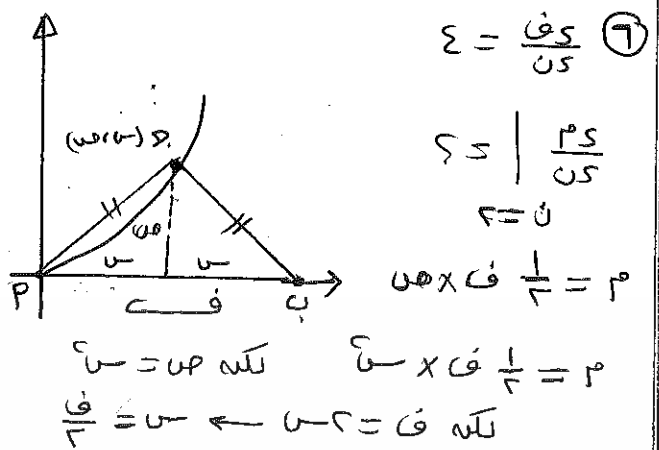 ٦ دف/دن = ٤
دم/دن | = ؟
ن = ٢
م = ١/٢ ف × ص
م = ١/٢ ف × س² لكن ص = س²
لكن ف = ٢س ← س = ف/٢
ج (س، ص)
ص
س س
م ف ب